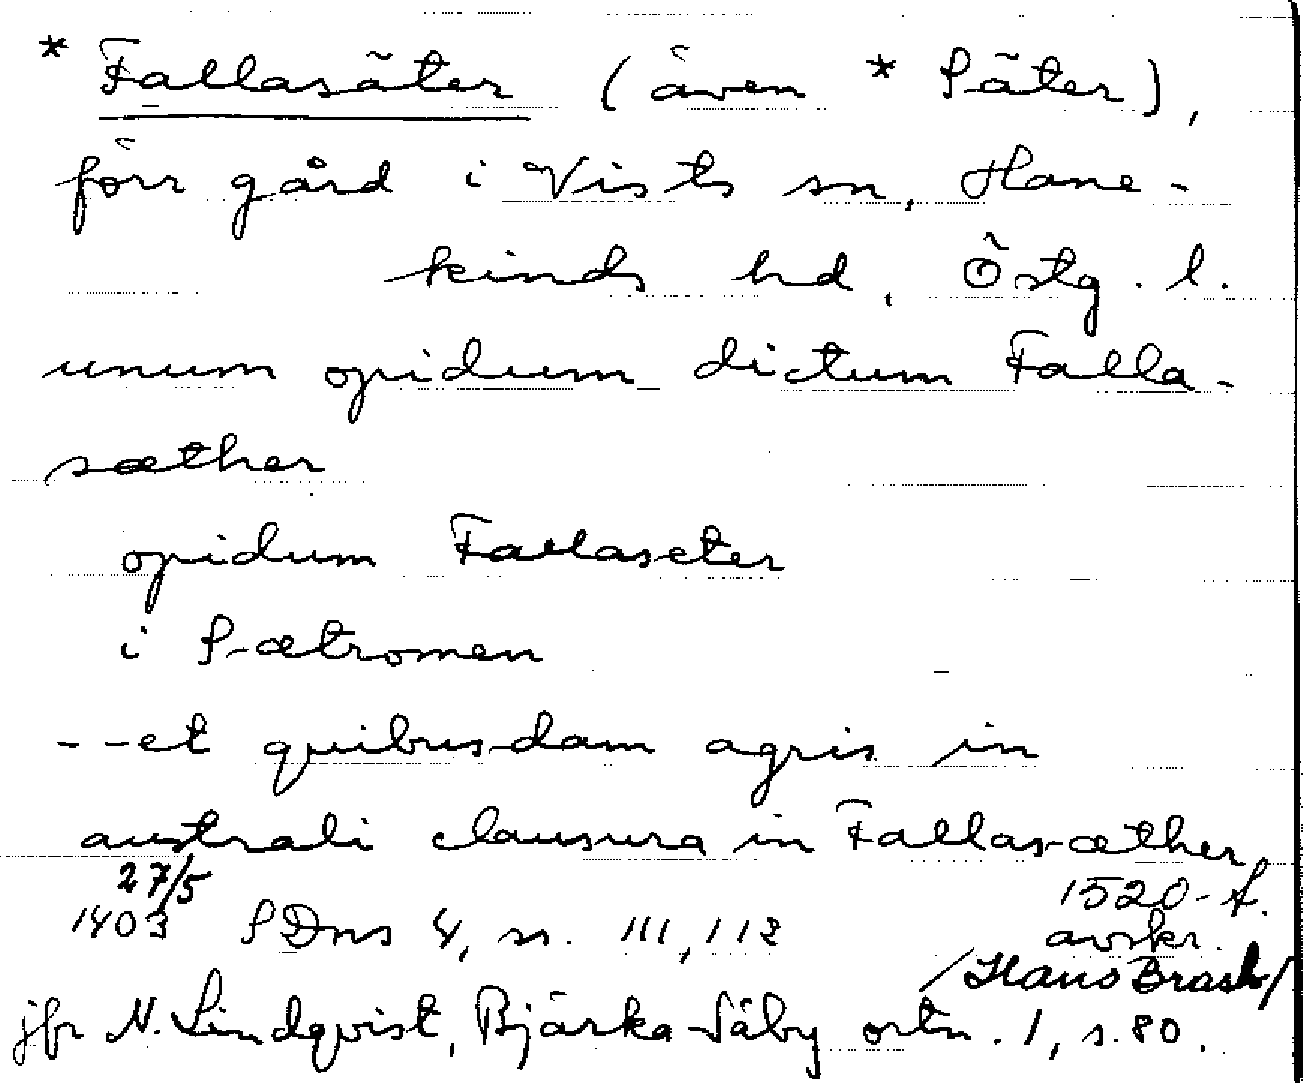 * Fallasäter (även * Säter),
förr gård i Vists sn, Hane-
kinds hd, Östg. l.
unum opidum dictum Falla-
sæther
opidum Fallaseter
i Sætromen
--et quibusdam agris in
australi clausura in Fallasæther
27/5
1403 SDns 4, s. 111, 112
1520-t.
avskr.
/Hans Brask/
jfr N. Lindqvist, Bjärka-Säby ortn. 1, s. 80.